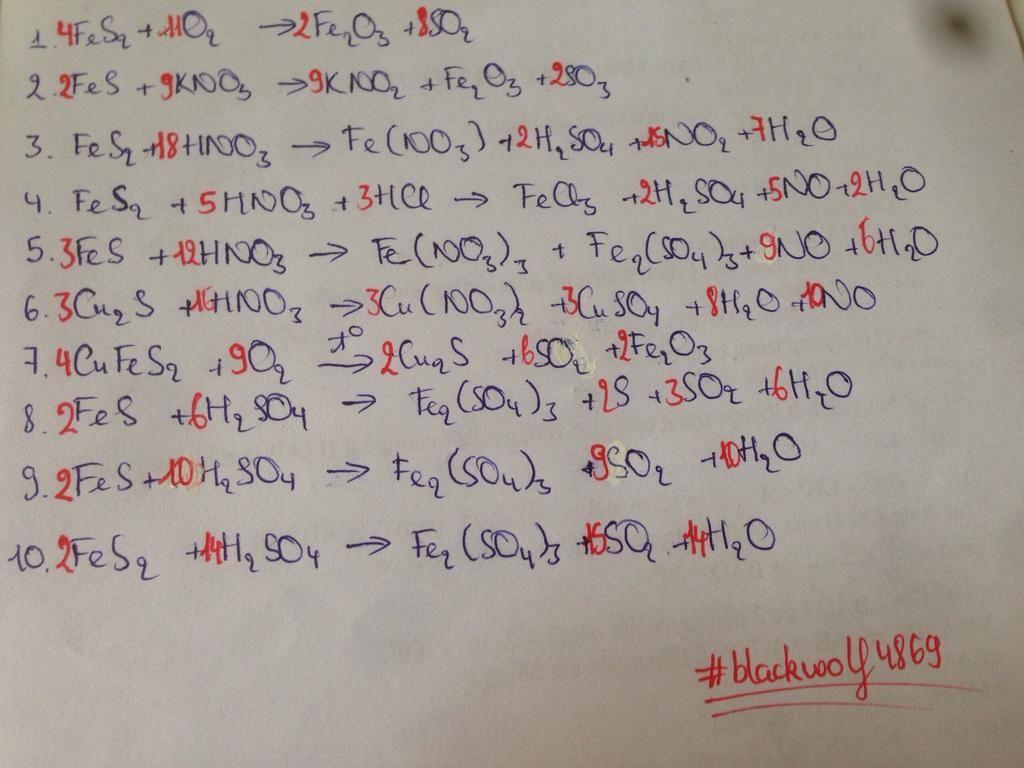 1. 4FeS₂ + 11O₂ → 2Fe₂O₃ + 8SO₂
2. 2FeS + 9KNO₃ → 9KNO₂ + Fe₂O₃ + 2SO₃
3. FeS₂ + 18HNO₃ → Fe(NO₃) + 2H₂SO₄ + 15NO₂ + 7H₂O
4. FeS₂ + 5HNO₃ + 3HCl → FeCl₃ + 2H₂SO₄ + 5NO + 2H₂O
5. 3FeS + 12HNO₃ → Fe(NO₃)₃ + Fe₂(SO₄)₃ + 9NO + 6H₂O
6. 3Cu₂S + 16HNO₃ → 3Cu(NO₃)₂ + 3CuSO₄ + 8H₂O + 10NO
7. 4CuFeS₂ + 9O₂ t° → 2Cu₂S + 6SO₂ + 2Fe₂O₃
8. 2FeS + 6H₂SO₄ → Fe₂(SO₄)₃ + 2S + 3SO₂ + 6H₂O
9. 2FeS + 10H₂SO₄ → Fe₂(SO₄)₃ + 9SO₂ + 10H₂O
10. 2FeS₂ + 14H₂SO₄ → Fe₂(SO₄)₃ + 15SO₂ + 14H₂O
#blackwolf4869